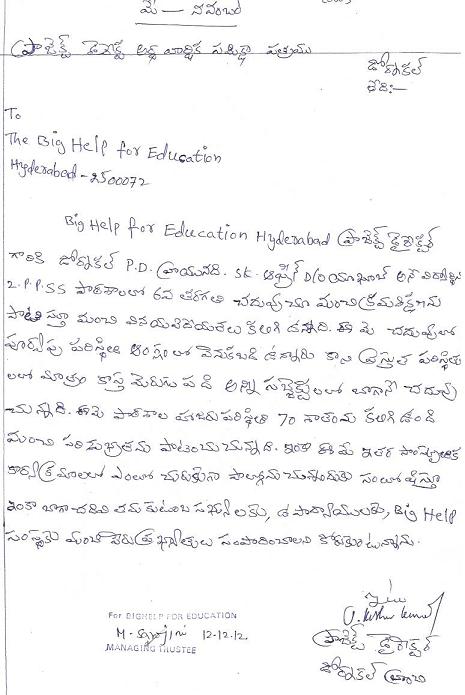 మే - నవంబర్
ప్రాజెక్ట్ అర్థ వార్షిక పత్రము
డోర్నకల్
తేది:-
To
The Big Help for Education
Hyderabad - 2500072
Big Help for Education Hyderabad ప్రాజెక్ట్ డైరెక్టర్
గారికి డోర్నకల్ P.D. వ్రాయునది. SK. ఆఫ్రీన్ D/o యాకూబ్ అనే విద్యార్థిని
Z.P.P.SS పాఠశాలలో 6వ తరగతి చదువుచూ మంచి క్రమశిక్షణను
పాటిస్తూ మంచి వినయవిధేయతలు కలిగి ఉన్నది. ఈమె చదువులో
పూర్వపు పరిస్థితి అంశంలో వెనుకబడి ఉన్నారు కాని ప్రస్తుత పరిస్థితు
లలో మాత్రం కాస్త మెరుగు పడి అన్ని సబ్జెక్ట్‌లలో బాగానే చదువు
చున్నది. ఈమె పాఠశాల హాజరు పరిస్థితి 70 శాతంను కలిగి ఉంది
మంచి పరిశుభ్రతను పాటించుచున్నది. ఇంకా ఈమె ఇతర సాంస్కృతిక
కార్యక్రమాలలో ఎంతో చురుకుగా పాల్గొనుచున్నందుకు సంతోషిస్తూ
ఇంకా బాగా చదివి తమ కుటుంబ సభ్యులకు, ఉపాధ్యాయులకు, Big Help
సంస్థకు మంచి పేరు ప్రఖ్యాతులు సంపాదించాలని కోరుకుంటున్నాను.
ఇట్లు
ప్రాజెక్ట్ డైరెక్టర్
డోర్నకల్
For BIGHELP FOR EDUCATION
M. Sarojini 12-12-12
MANAGING TRUSTEE